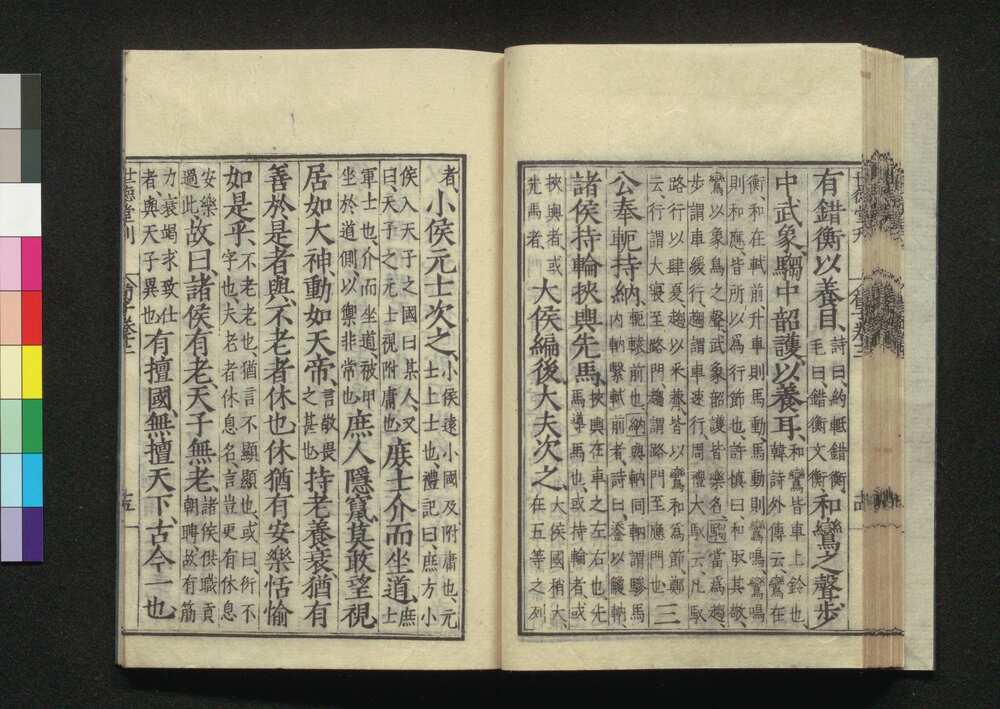 有錯衡以養目、詩曰、約軧錯衡、毛曰、錯衡文衡、和鸞之聲步
中武象騶中韶護以養耳、和鸞皆車上鈴也韓詩外傳云、鸞在
衡、和在軾前升車則馬動、馬動則鸞鳴、鸞鳴
則和應、皆所以爲行節也、許愼曰和取其敬、
鸞以象鳥之聲、武象韶護皆樂名、騶當爲趨、
步謂車緩行、趨謂車速行、周禮大馭云、凡馭
路行以肆夏、趨以采薺、皆以鸞和爲節、鄭
云、行謂大寢至路門、趨謂路門至應門也三
公奉軛持納、軛、轅前也、納與軜同軜謂驂馬內轡繫軾前者、詩曰、鋈以觼軜、
諸侯持輪挾輿先馬、挾輿在車之左右也先馬導馬也、或持輪者或
挾輿者或先馬者、大侯編後大夫次之、大侯國稍大、在五等之列
者、小侯元士次之、小侯遠小國及附庸也、元士上士也、禮記曰、庶方小
侯入天子之國曰某人、又曰、天子之元士視附庸也庶士介而坐道、庶士
軍士也、介而坐道、被甲坐於道側、以禦非常也庶人隱竄莫敢望視、
居如大神、動如天帝、言敬畏之甚也持老養衰猶有
善於是者與、不老者休也休猶有安樂恬愉
如是乎、不老老也、猶言不顯顯也、或曰、衍不字也、夫老者休息名、言豈更有休息
安樂過此、故曰、諸侯有老、天子無老、諸侯供職貢朝聘故有筋
力衰竭求致仕者與天子異也有擅國、無擅天下、古今一也
世德堂刊